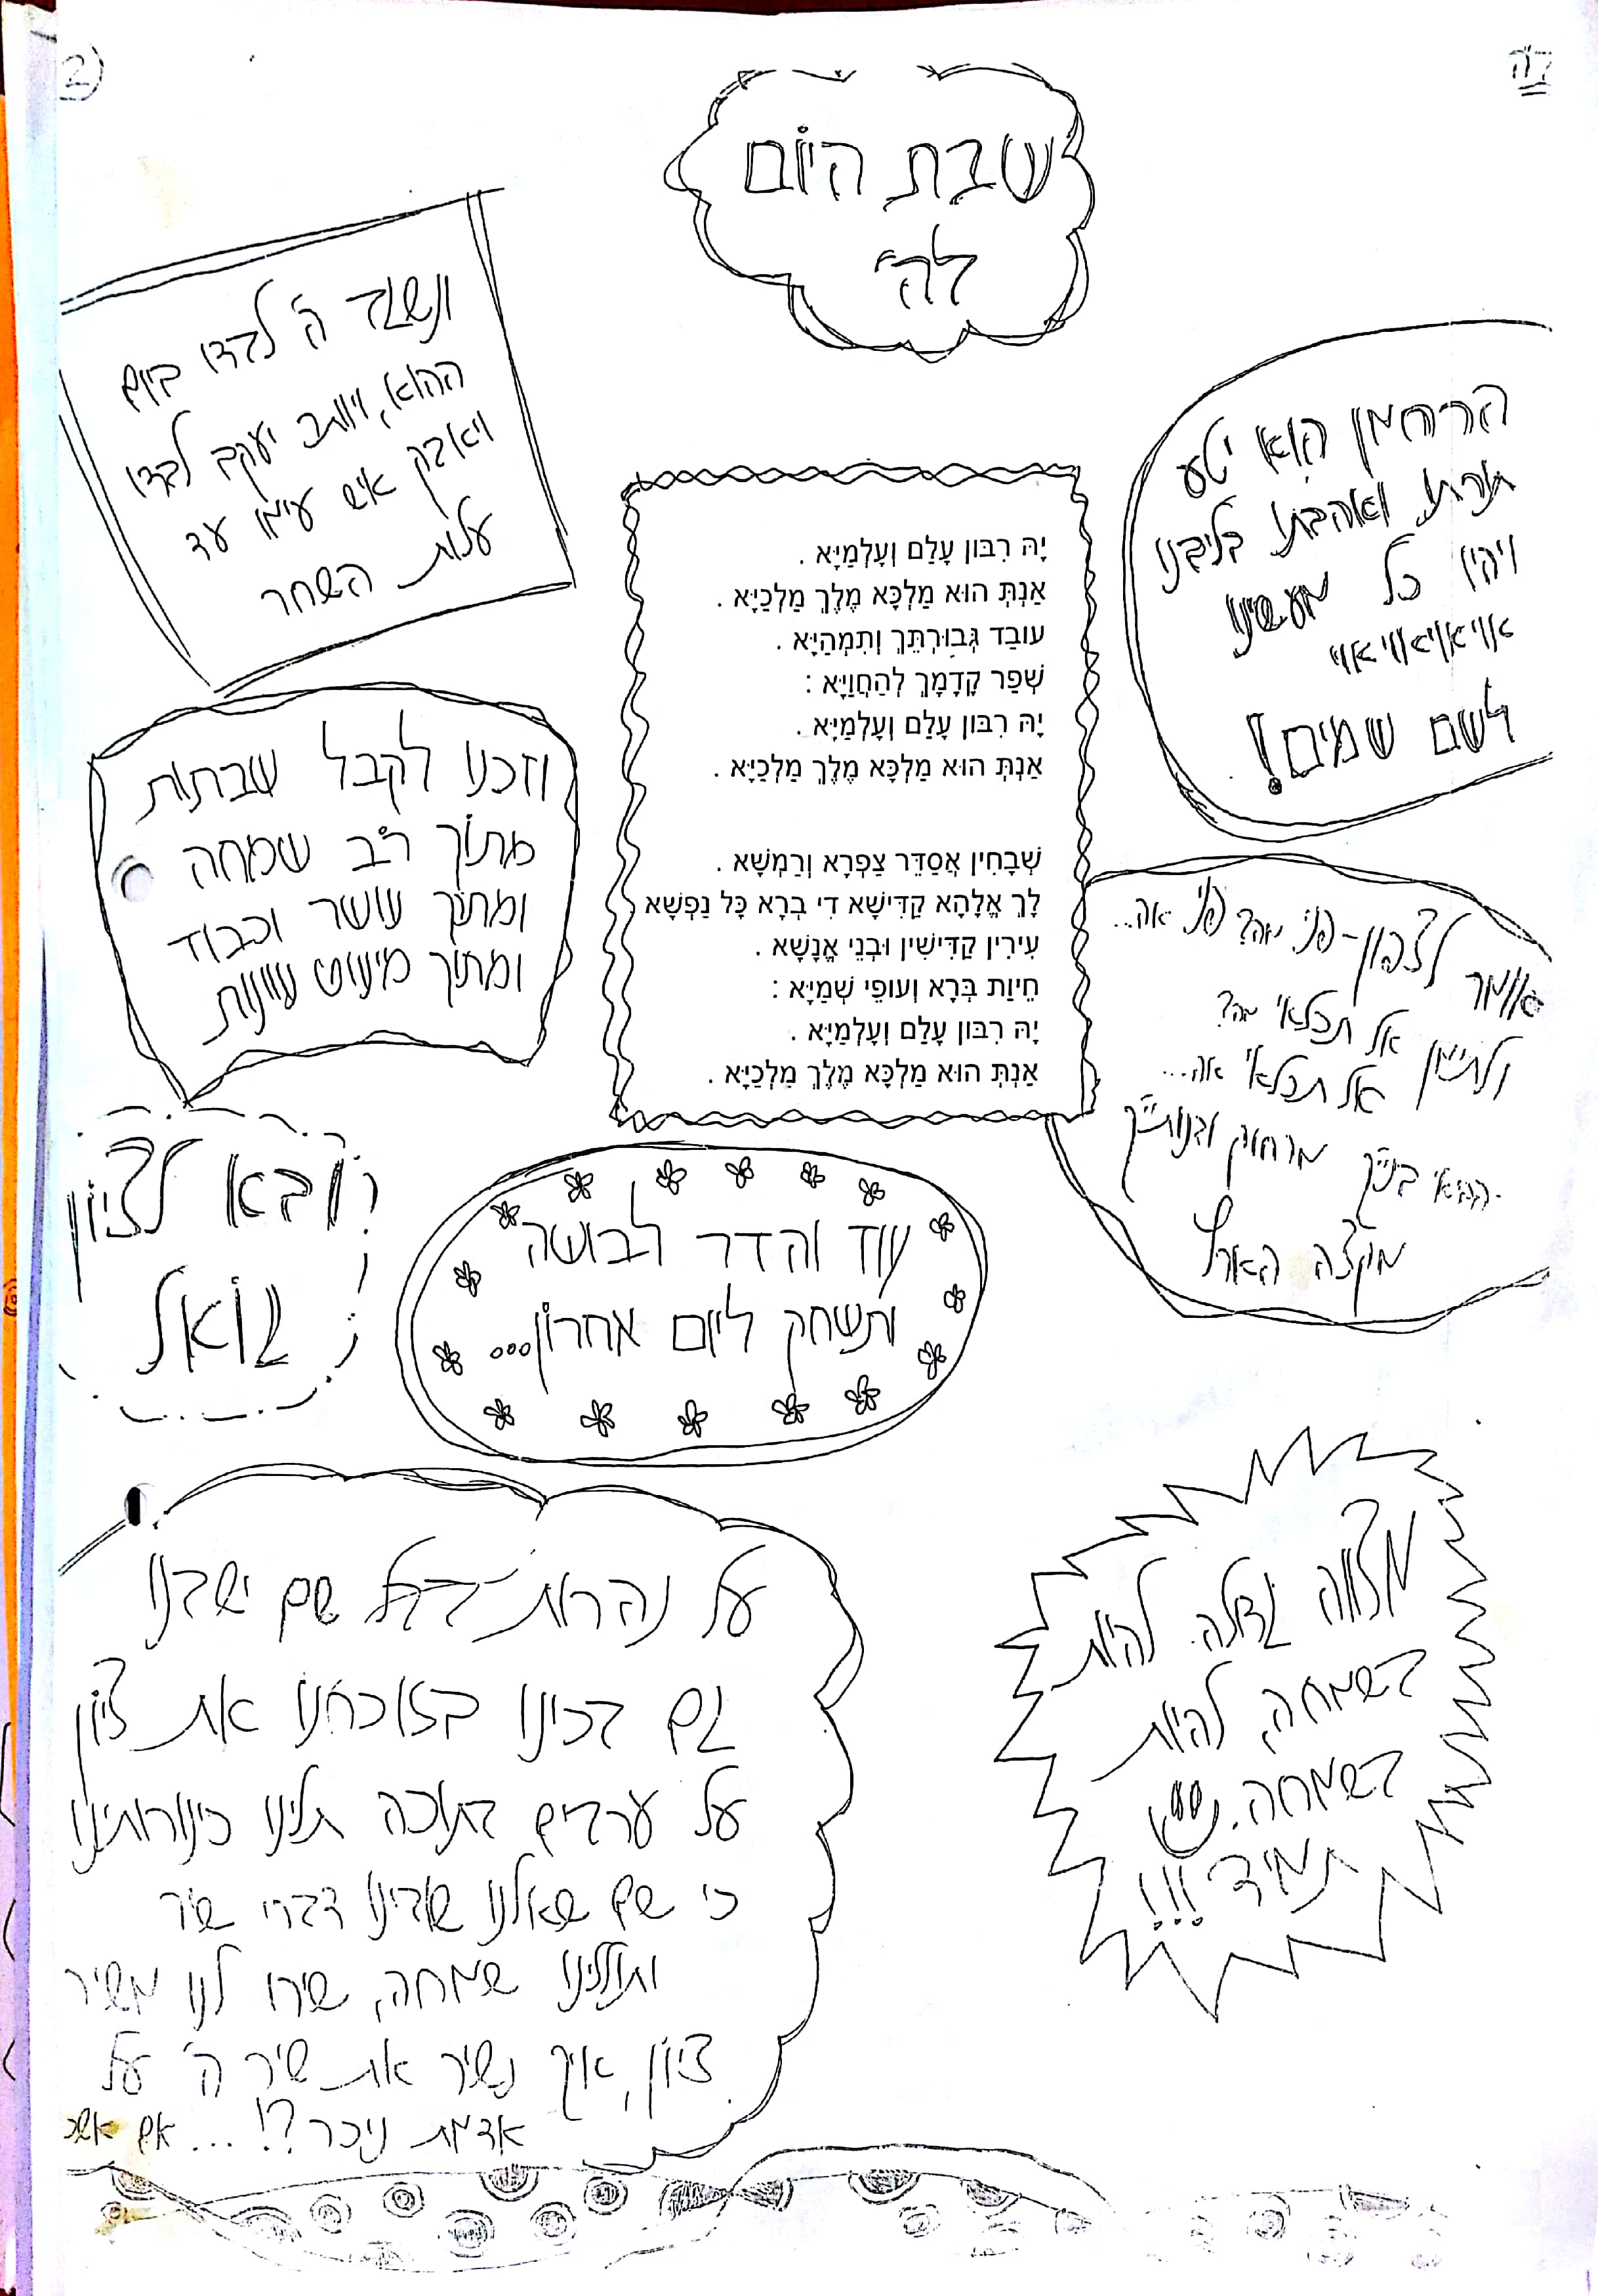 ב"ה
2)
שבת היום
לה'
ונשגב ה' לבדו ביום
ההוא, ויותר יעקב לבדו
ויאבק איש עימו עד
עלות השחר
הרחמן הוא יטע
תורתו ואהבתו בליבנו
ויהיו כל מעשינו
אויאויאויאוי
לשם שמים!
יָהּ רִבּוֹן עָלַם וְעָלְמַיָּא .
אַנְתְּ הוּא מַלְכָּא מֶלֶךְ מַלְכַיָּא .
עוֹבַד גְּבוּרְתֵּךְ וְתִמְהַיָּא .
שְׁפַר קָדָמָךְ לְהַחֲוַיָּא :
יָהּ רִבּוֹן עָלַם וְעָלְמַיָּא .
אַנְתְּ הוּא מַלְכָּא מֶלֶךְ מַלְכַיָּא .
שְׁבָחִין אֲסַדֵּר צַפְרָא וְרַמְשָׁא .
לָךְ אֱלָהָא קַדִּישָׁא דִי בְרָא כָּל נַפְשָׁא
עִירִין קַדִּישִׁין וּבְנֵי אֱנָשָׁא .
חֵיוַת בְּרָא וְעוֹפֵי שְׁמַיָּא :
יָהּ רִבּוֹן עָלַם וְעָלְמַיָּא .
אַנְתְּ הוּא מַלְכָּא מֶלֶךְ מַלְכַיָּא .
וזכנו לקבל שבתות
מתוך רב שמחה
ומתוך עושר וכבוד
ומתוך מיעוט עוונות
אומר לצפון - תני מה? תני אה...
ולתימן אל תכלאי מה?
אל תכלאי אה...
הביאי בנייך מרחוק ובנותייך
מקצה הארץ
ובא לציון
גואל
עוז והדר לבושה
ותשחק ליום אחרון...
מצווה גדולה להיות
בשמחה, להיות
בשמחה.
תמיד!!!
על נהרות בבל שם ישבנו
גם בכינו בזוכרנו את ציון
על ערבים בתוכה תלינו כינורותינו
כי שם שאלנו שובינו דברי שיר
ותוללינו שמחה, שירו לנו משיר
ציון, איך נשיר את שיר ה' על
אדמת ניכר?!... אם אשכ